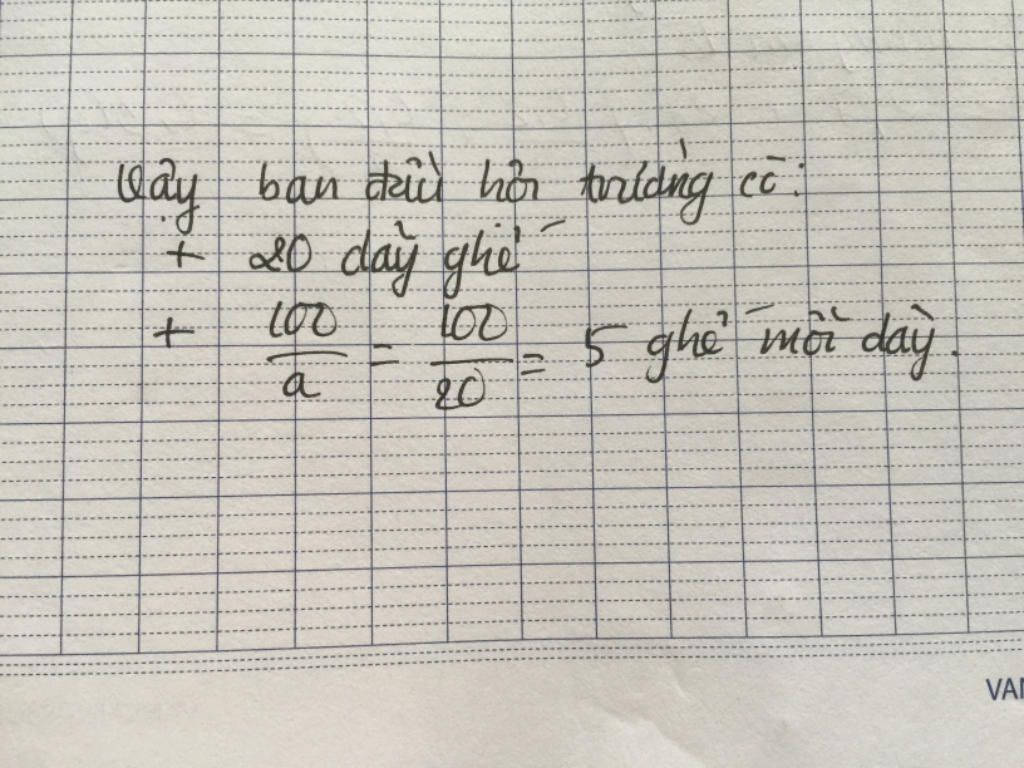 Vậy ban đầu hội trường có:
+ 20 dãy ghế
+ 100/a = 100/20 = 5 ghế mỗi dãy.
VAN